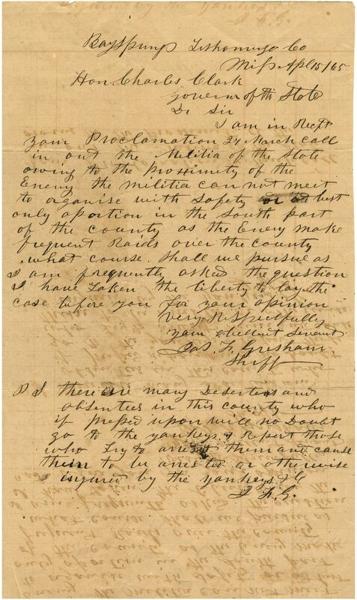 Bay Springs Tishomingo Co
Miss Apl 15/65
Hon Charles Clark
Governor of the State
Dr Sir
I am in Recpt
your Proclamation 24 March call
in out the Melitia of the State
owing to the proximity of the
Enemy the militia can not meet
to organise with Safety or at best
only a portion in the South part
of the county as the Enemy make
frequent Raids over the county
what course Shall we pursue as
I am frequently asked the question
I have taken the liberty to lay the
case before you for your opinion
very Respectfully
your obedient Servant
Jas. F. Gresham
Shiff
P S there are many Deserters and
absentees in this county who
if pressed upon will no Doubt
go to the yankeys & Report those
who try to arrest them and cause
them to be arrested or otherwise
injured by the yankeys &c
J F G